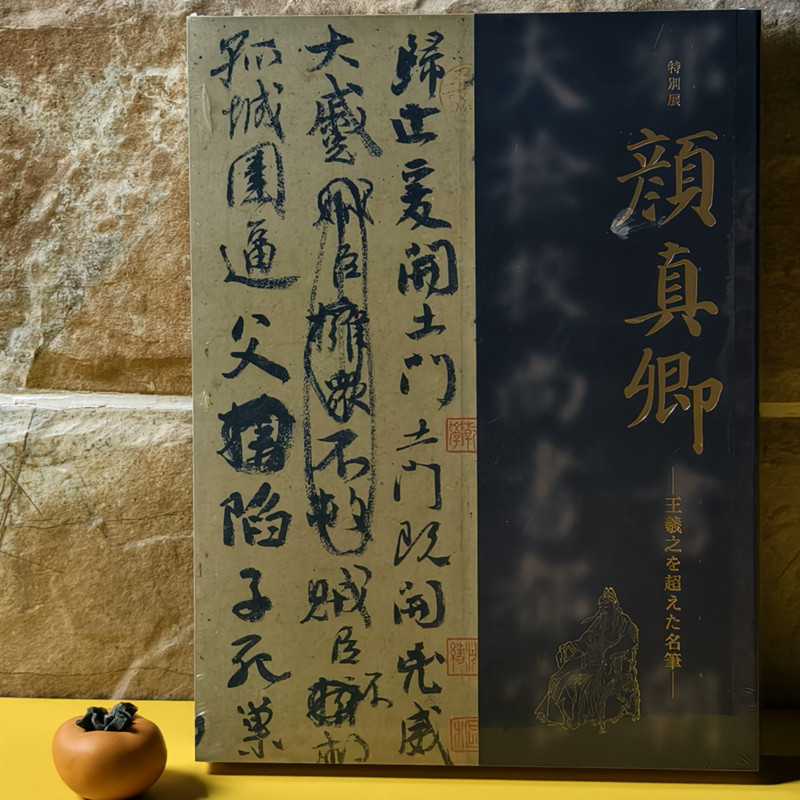 特別展
顔真卿
王羲之を超えた名筆
歸止爰開土門土門既開兇威
大蹙賊臣擁衆不救賊臣不救
孤城圍逼父陷子死巢